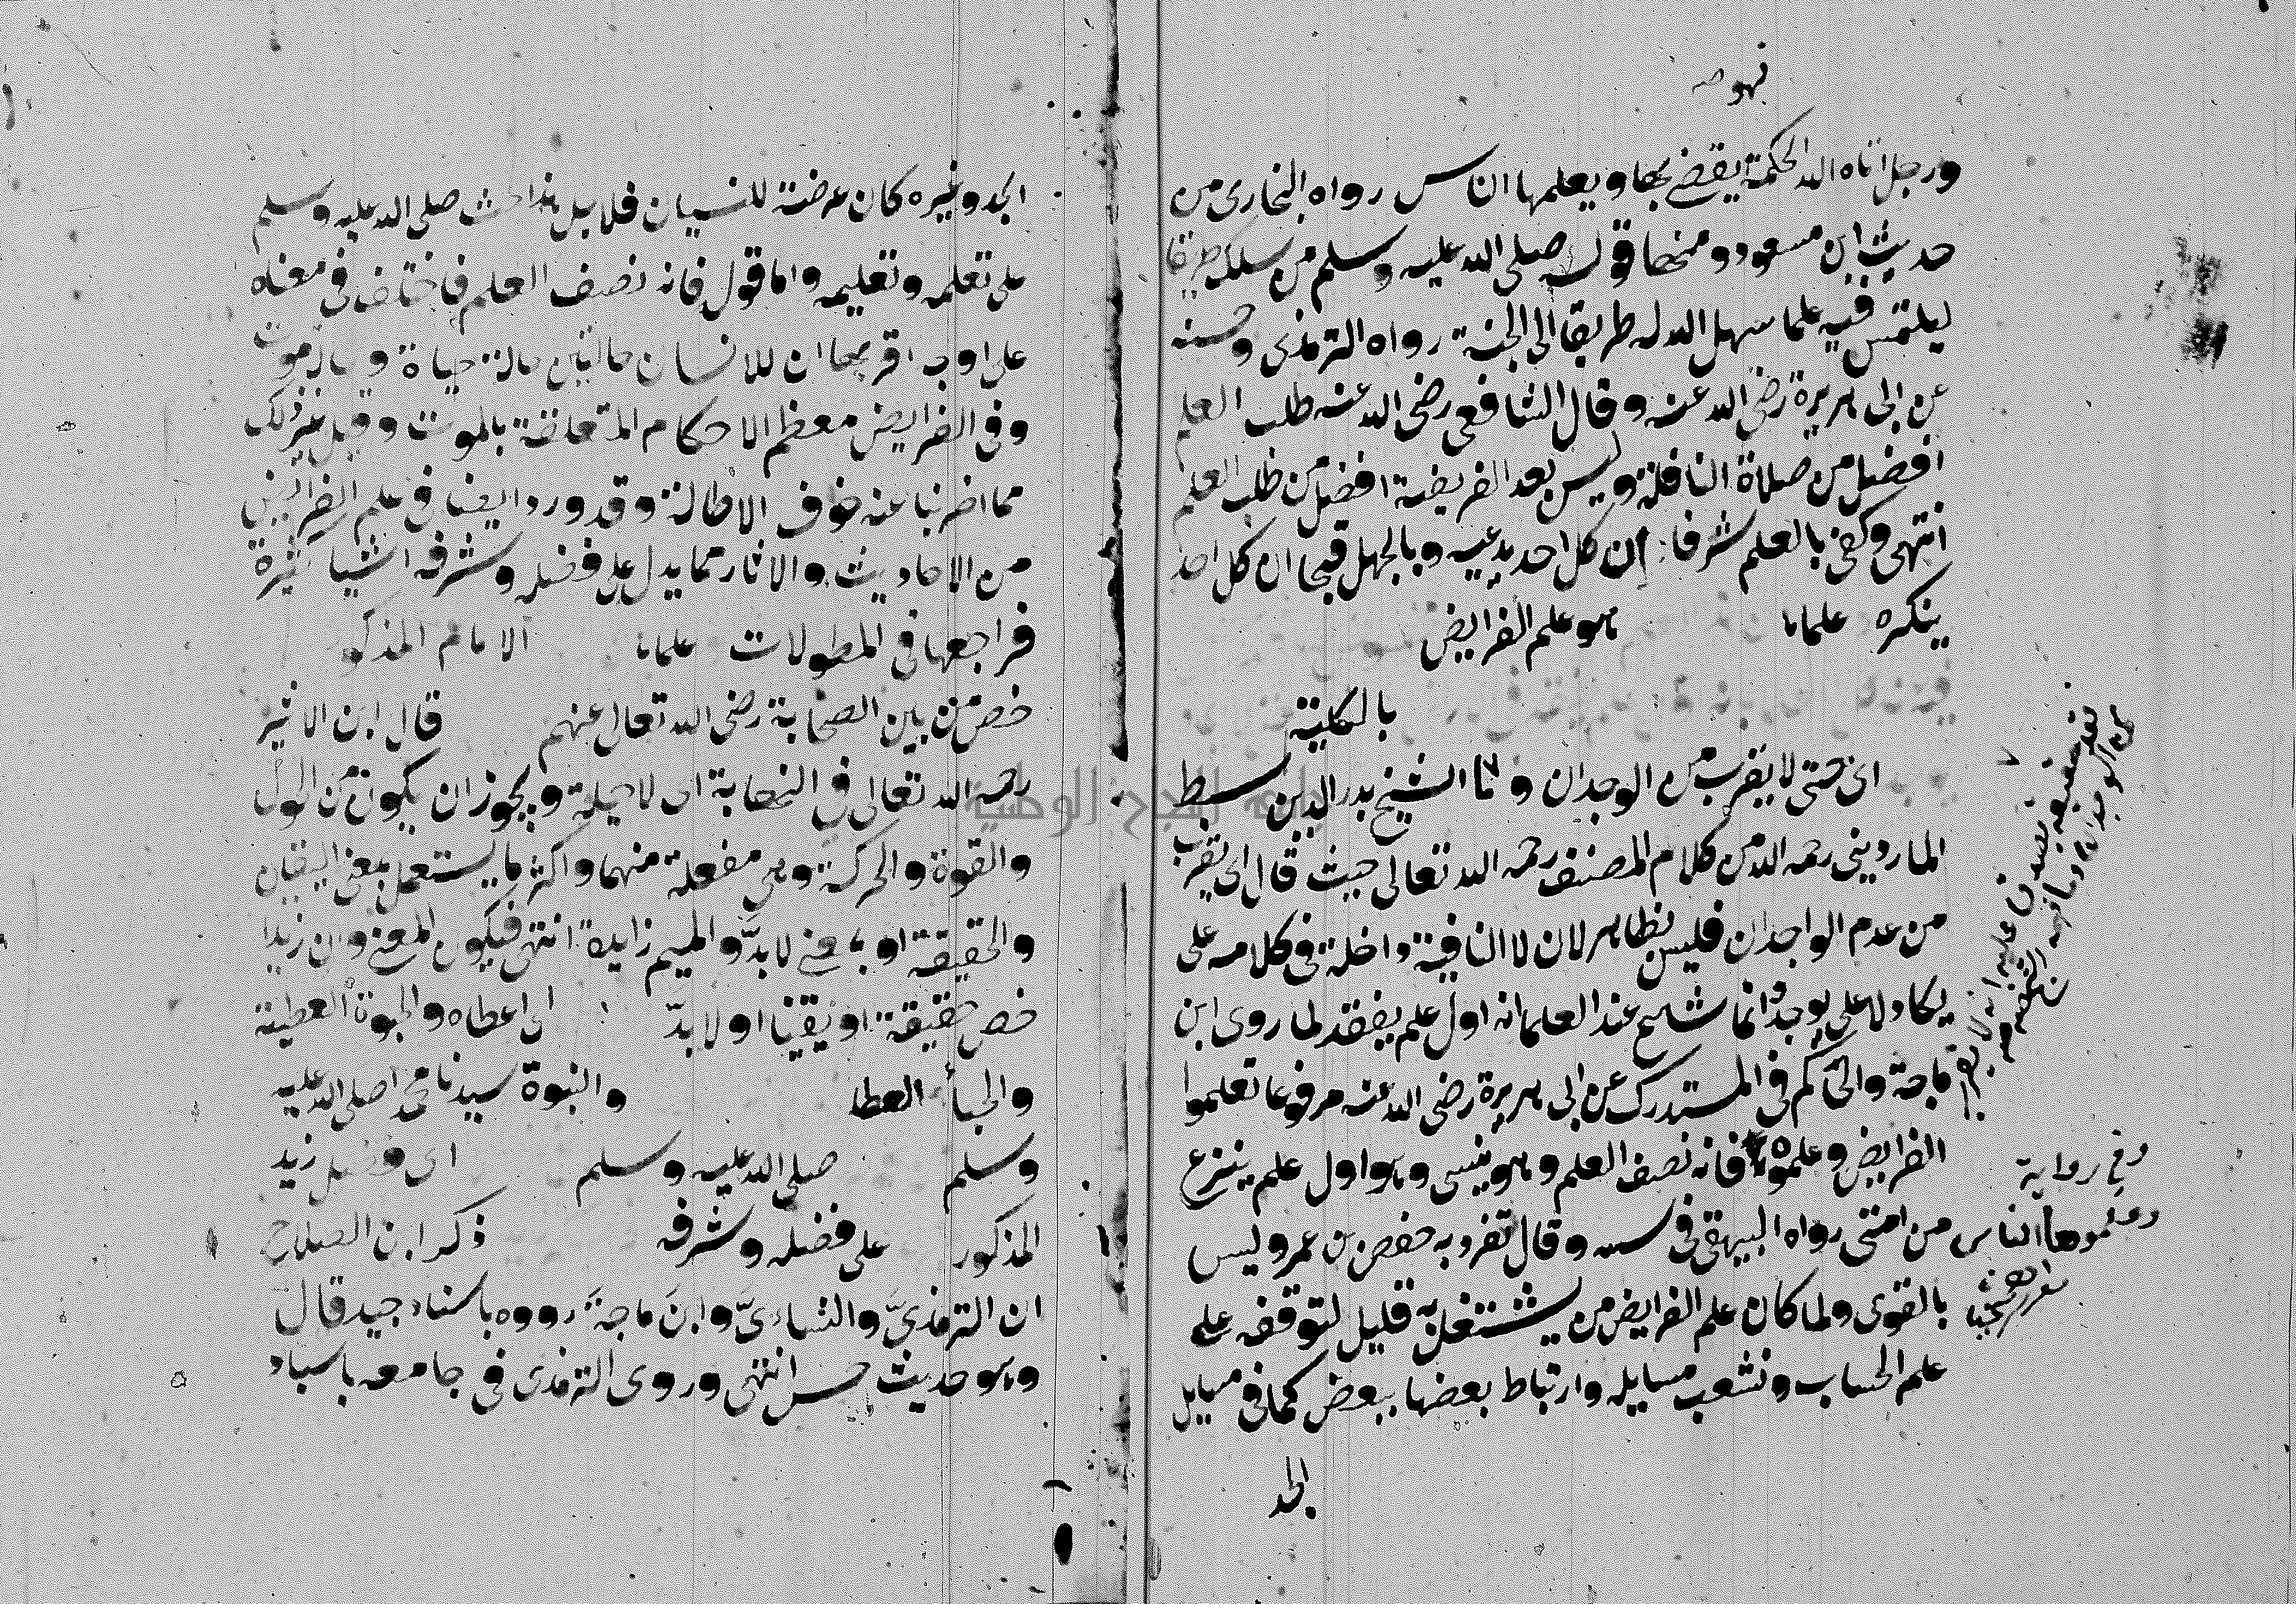 ورجل اتاه الله الحكمة يقضي بها ويعلمها الناس رواه البخارى من
حديث ابن مسعود ومنها قوله صلى الله عليه وسلم من سلك طريقا
ليلتمس فيه علما سهل الله له طريقا الى الجنة رواه الترمذى وحسنه
عن ابى هريرة رضى الله عنه وقال الشافعى رضى الله عنه طلب العلم
افضل من صلاة النافلة وليس بعد الفريضة افضل من طلب العلم
انتهى وكفى بالعلم شرفا ان كل احد يدعيه وبالجهل قبحا ان كل احد
ينكره علما هو علم الفرايض
بالكلية
اى حتى لا يقرب من الوجدان واما الشيخ بدر الدين سبط
الماردينى رحمه الله من كلام المصنف رحمه الله تعالى حيث قال اى يقرب
من عدم الواجدان فليس بظاهر لان لا النافية داخلة فى كلامه على
يكاد لا على يوجد وانما شاع عند العلما انه اول علم يفقد لما روى ابن
ماجة والحاكم فى المستدرك عن ابى هريرة رضى الله عنه مرفوعا تعلموا
الفرايض وعلموه فانه نصف العلم وهو ينسى وهو اول علم ينتزع
من امتى رواه البيهقى فى سننه وقال تفرد به حفص بن عمر وليس
بالقوى ولما كان علم الفرايض من يشتغل به قليل لتوقفه على
علم الحساب وتشعب مسايله وارتباط بعضها ببعض كما فى مسايل
الجد
وفي رواية
وعلموها الناس
الجد وغيره كان عرضة للنسيان فلاجل هذا حث صلى الله عليه وسلم
على تعلمه وتعليمه واما قوله فانه نصف العلم فاختلف فى معناه
على اوجه اقربها ان للانسان حالتين حالة حياة وحالة موت
وفى الفرايض معظم الاحكام المتعلقة بالموت وقيل غير ذلك
مما اضربنا عنه خوف الاطالة وقد ورد ايضا فى علم الفرايض
من الاحاديث والاثار مما يدل على فضله وشرفه اشيا كثيرة
فراجعها فى المطولات علما الامام المذكور
خص من بين الصحابة رضى الله تعالى عنهم قال ابن الاثير
رحمه الله تعالى فى النهاية اى لا حيلة ويجوز ان يكون من الحول
والقوة والحركة وهى مفعلة منهما واكثر ما يستعمل بمعنى اليقين
والحقيقة او بمعنى لا بدّ والميم زايدة انتهى فيكون المعنى وان زيدا
خص حقيقة او يقينا او لا بدّ اى اعطاه والحبوة العطية
والحبا العطا والنبوة سيدنا محمد صلى الله عليه
وسلم صلى الله عليه وسلم اى فضل زيد
المذكور على فضله وشرفه ذكر ابن الصلاح
ان الترمذىَّ والنساءىَّ وابنَ ماجةَ رووه باسناد جيد قال
وهو حديث حسن انتهى وروى الترمذى فى جامعه باسناد
جامعة النجاح الوطنية